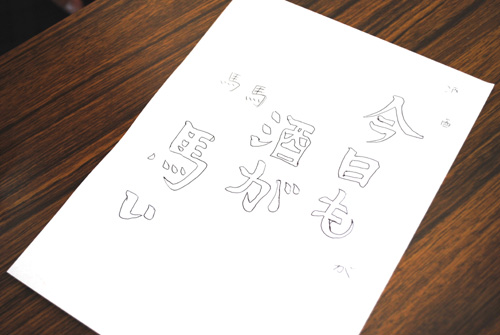 今日も
が
酒が
馬馬
馬い